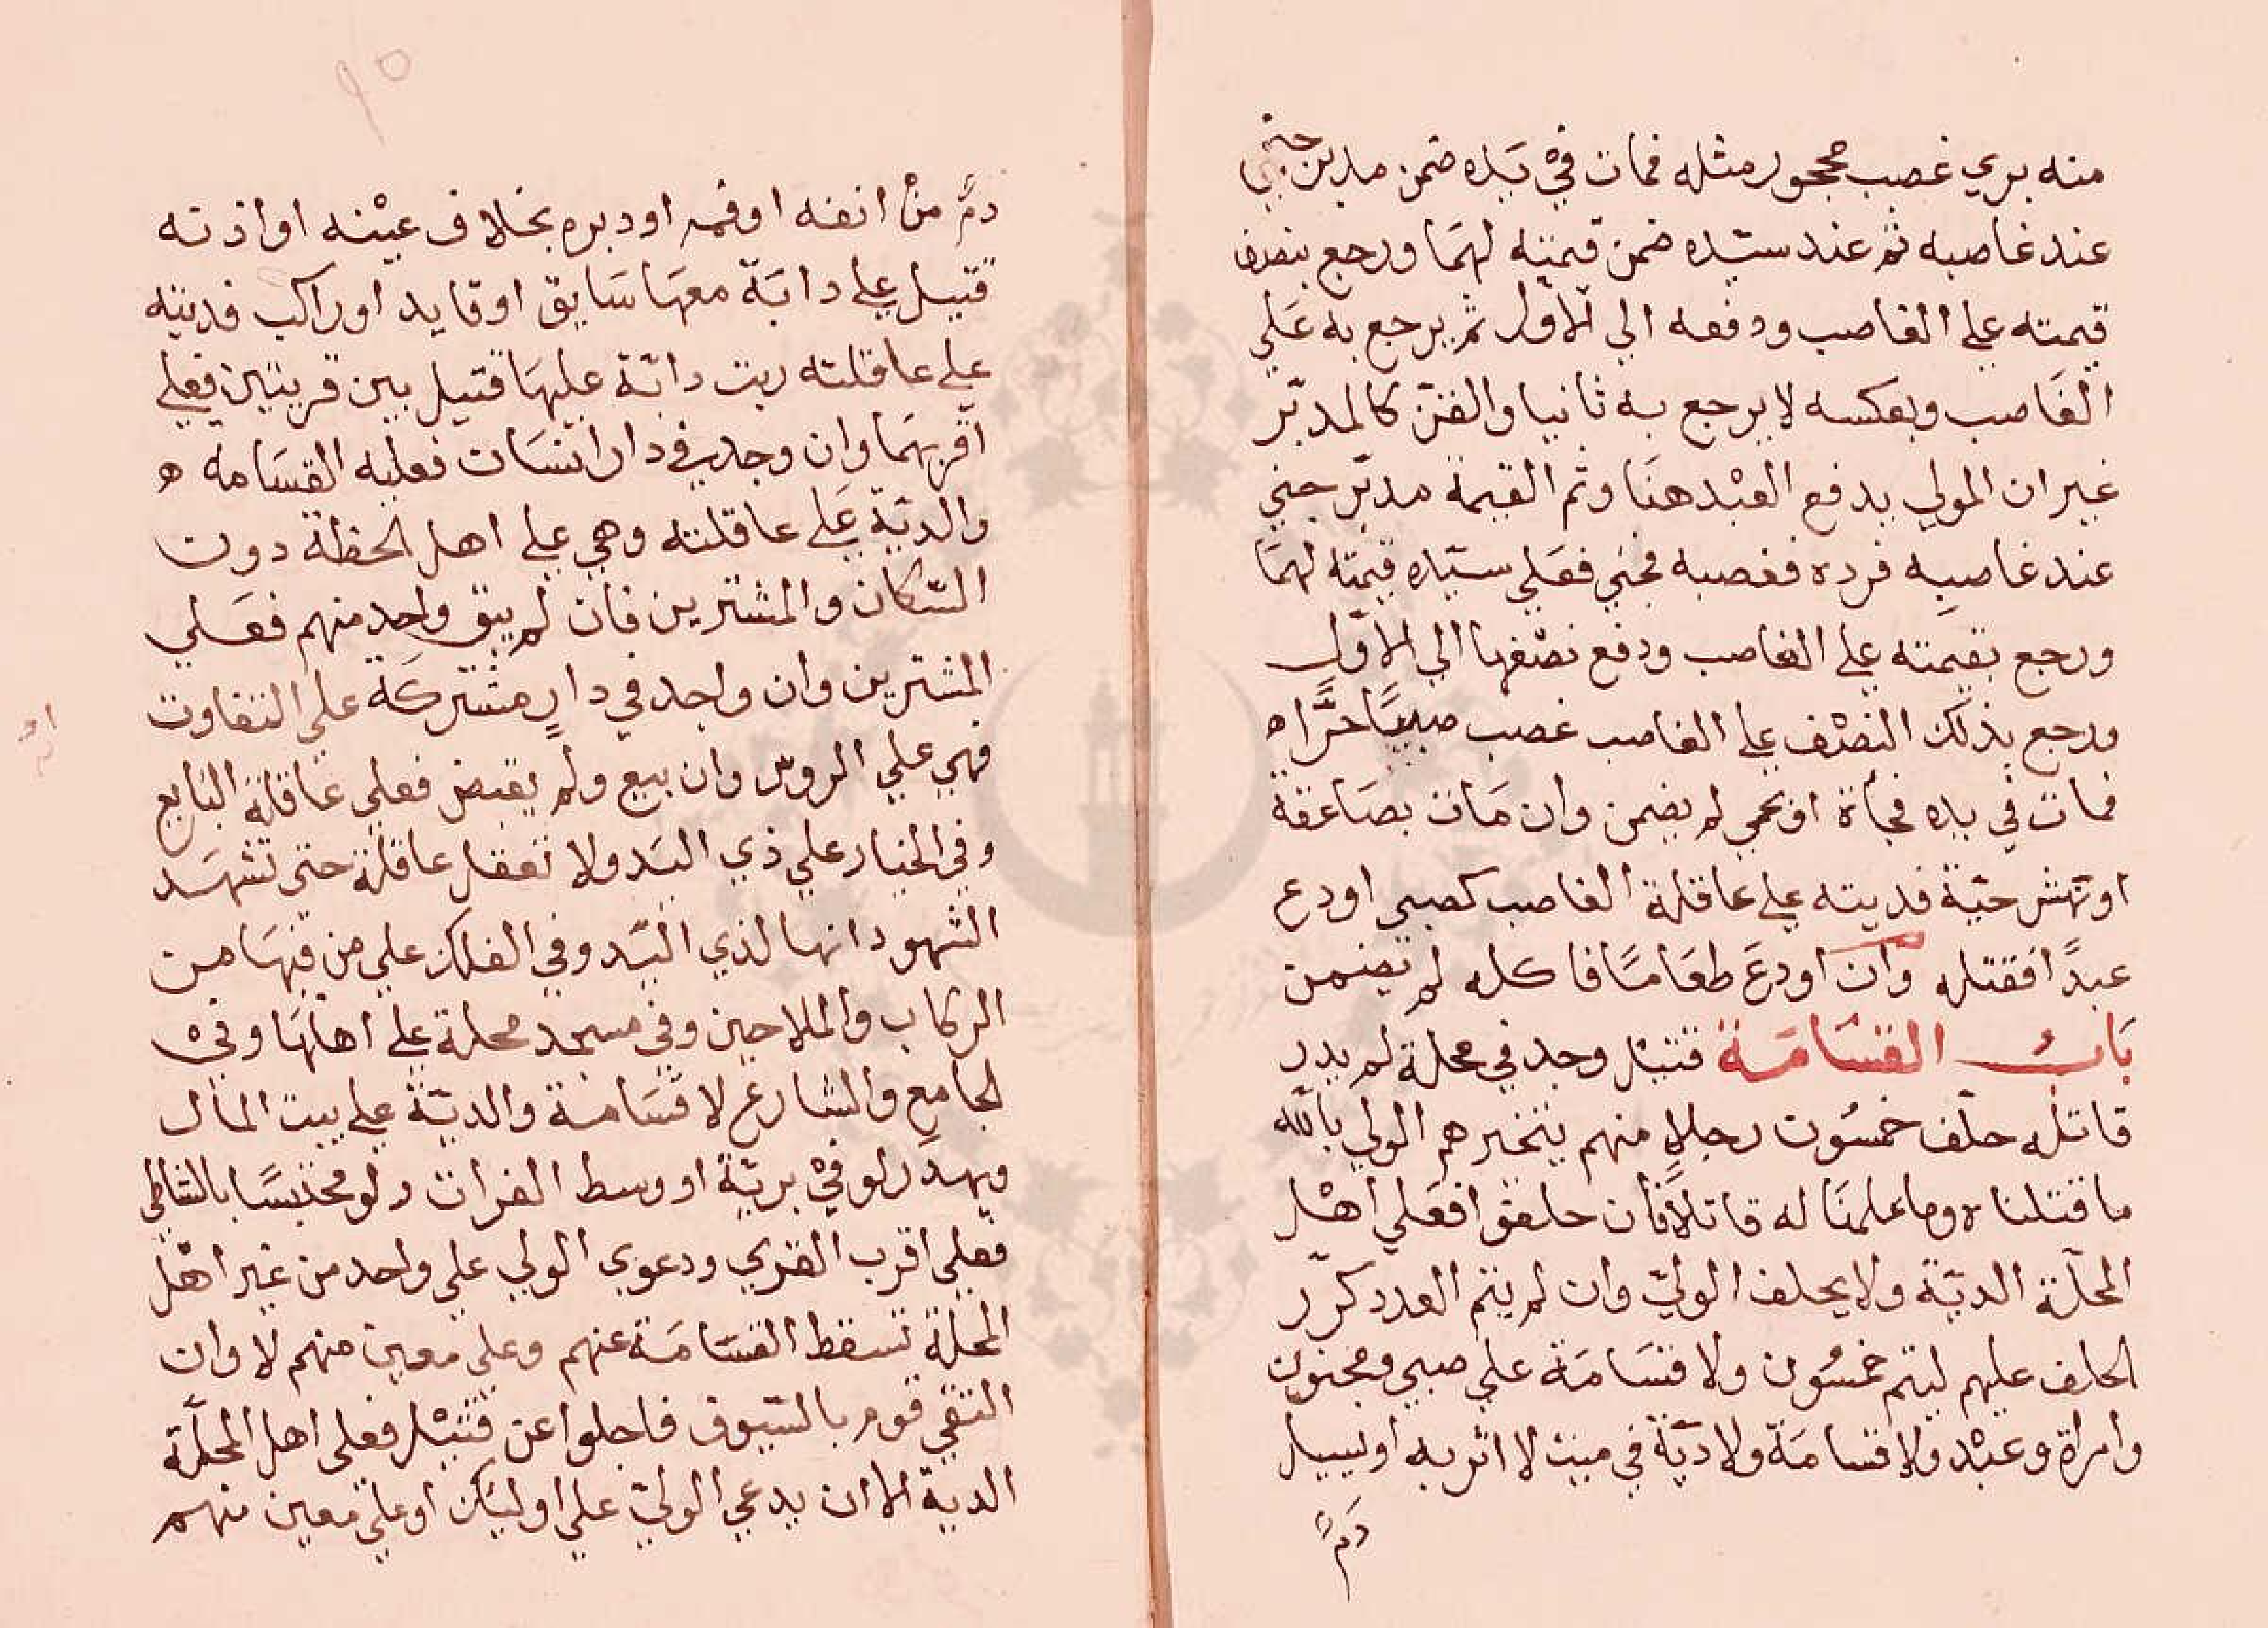 منه بري غصب محجور مثله فمات في يَده ضمن مدبر جني
عند غاصبه ثم عند سيّده ضمن قيمته لهمَا ورجع بنصف
قيمته علي الغاصب ودفعه الي الاول ثم يرجع به عَلي
الغَاصب وبعكسه لا يرجع به ثانيا والقنّ كالمدبّر
غير ان المولي يدفع العبْد هنَا وثم القيمة مدبّر جني
عند غاصبه فرده فغصبه فجني فعَلي سيّده قيمته لهمَا
ورجع بقيمته علي الغاصب ودفع نصْفها الي الاوّل
ورجع بذلك النصْف علي الغاصب غصب صبيًا حُرًّا ه
فمات في يده فجأة او بحمي لم يضمن وان مَات بصَاعقة
او نهش حيّة فديته علي عاقلة الغاصب كصبي اودع
عبدًا فقتله وان اودعَ طعَامًا فاكله لم يضمن
بَابُ القسَامَة قتيْل وجد في محلة لم يدر
قاتله حلّف خمسُون رجلا منهم يتخيرهم الولي بالله
ما قتلناه وما علمنَا له قاتلًا فان حلفوا فعَلي اهْل
المحلّة الديّة ولا يحلف الوليّ وان لم يتم العدد كرّر
الحلف عليهم ليتم خمسُون ولا قسَامَة علي صبي ومجنون
وامراة وعبْد ولا قسامَة ولا ديّة في ميت لا اثر به او يسيل
دَمٌ
٩٥
دمٌ منْ انفه او فمه او دبره بخلاف عيْنه او اذنه
قتيل علي دابّة معهَا سَايق او قايد او راكب فديته
علي عاقلته مرت دابّة عليهَا قتيل بين قريتين فعلي
اقربهمَا وان وجد في دار انسَان فعليه القسَامه ه
والديّة عَلي عاقلته وهي علي اهل الخطة دون
السّكان والمشترين فان لم يبق واحد منهم فعَلي
المشترين وان واجد في دارٍ مشتركَة علي التفاوت
فهي علي الروس وان بيع ولم يقبض فعلي عَاقلة البَايع
وفي الخيار علي ذي اليَد ولا تعقل عاقلة حتى تشهَد
الشهود انها لذي اليَد وفي الفلك علي من فيهَا من
الركاب والملاحين وفي مسجد محلة علي اهلهَا وفيْ
الجامع والشارع لا قسَامَة والديّة علي بيت المَال
ويهدَر لو فيْ بريّة او وسط الفرات ولو محتبسًا بالشاطي
فعلي اقرب القري ودعوي الولي علي واحد من غير اهْل
المحلة تسقط القسَامَة عنهم وعلي معين منهم لا وان
التقي قوم بالسّيوف فاجلوا عن قتيْل فعلي اهل المحلّة
الدية الا ان يدعي الوليّ علي اوليك او علي معين منهم